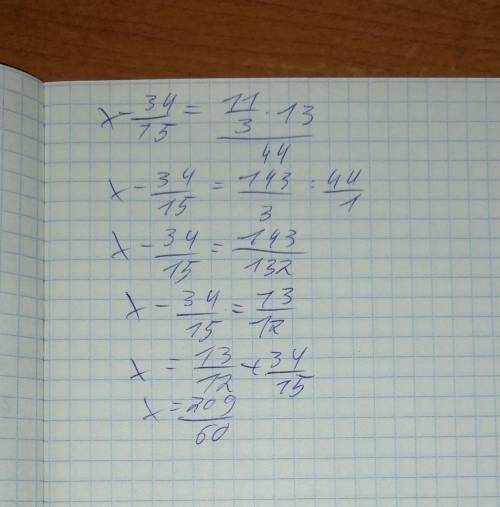 x - 34/15 = (11/3 · 13)/44
x - 34/15 = 143/3 : 44/1
x - 34/15 = 143/132
x - 34/15 = 13/12
x = 13/12 + 34/15
x = 209/60